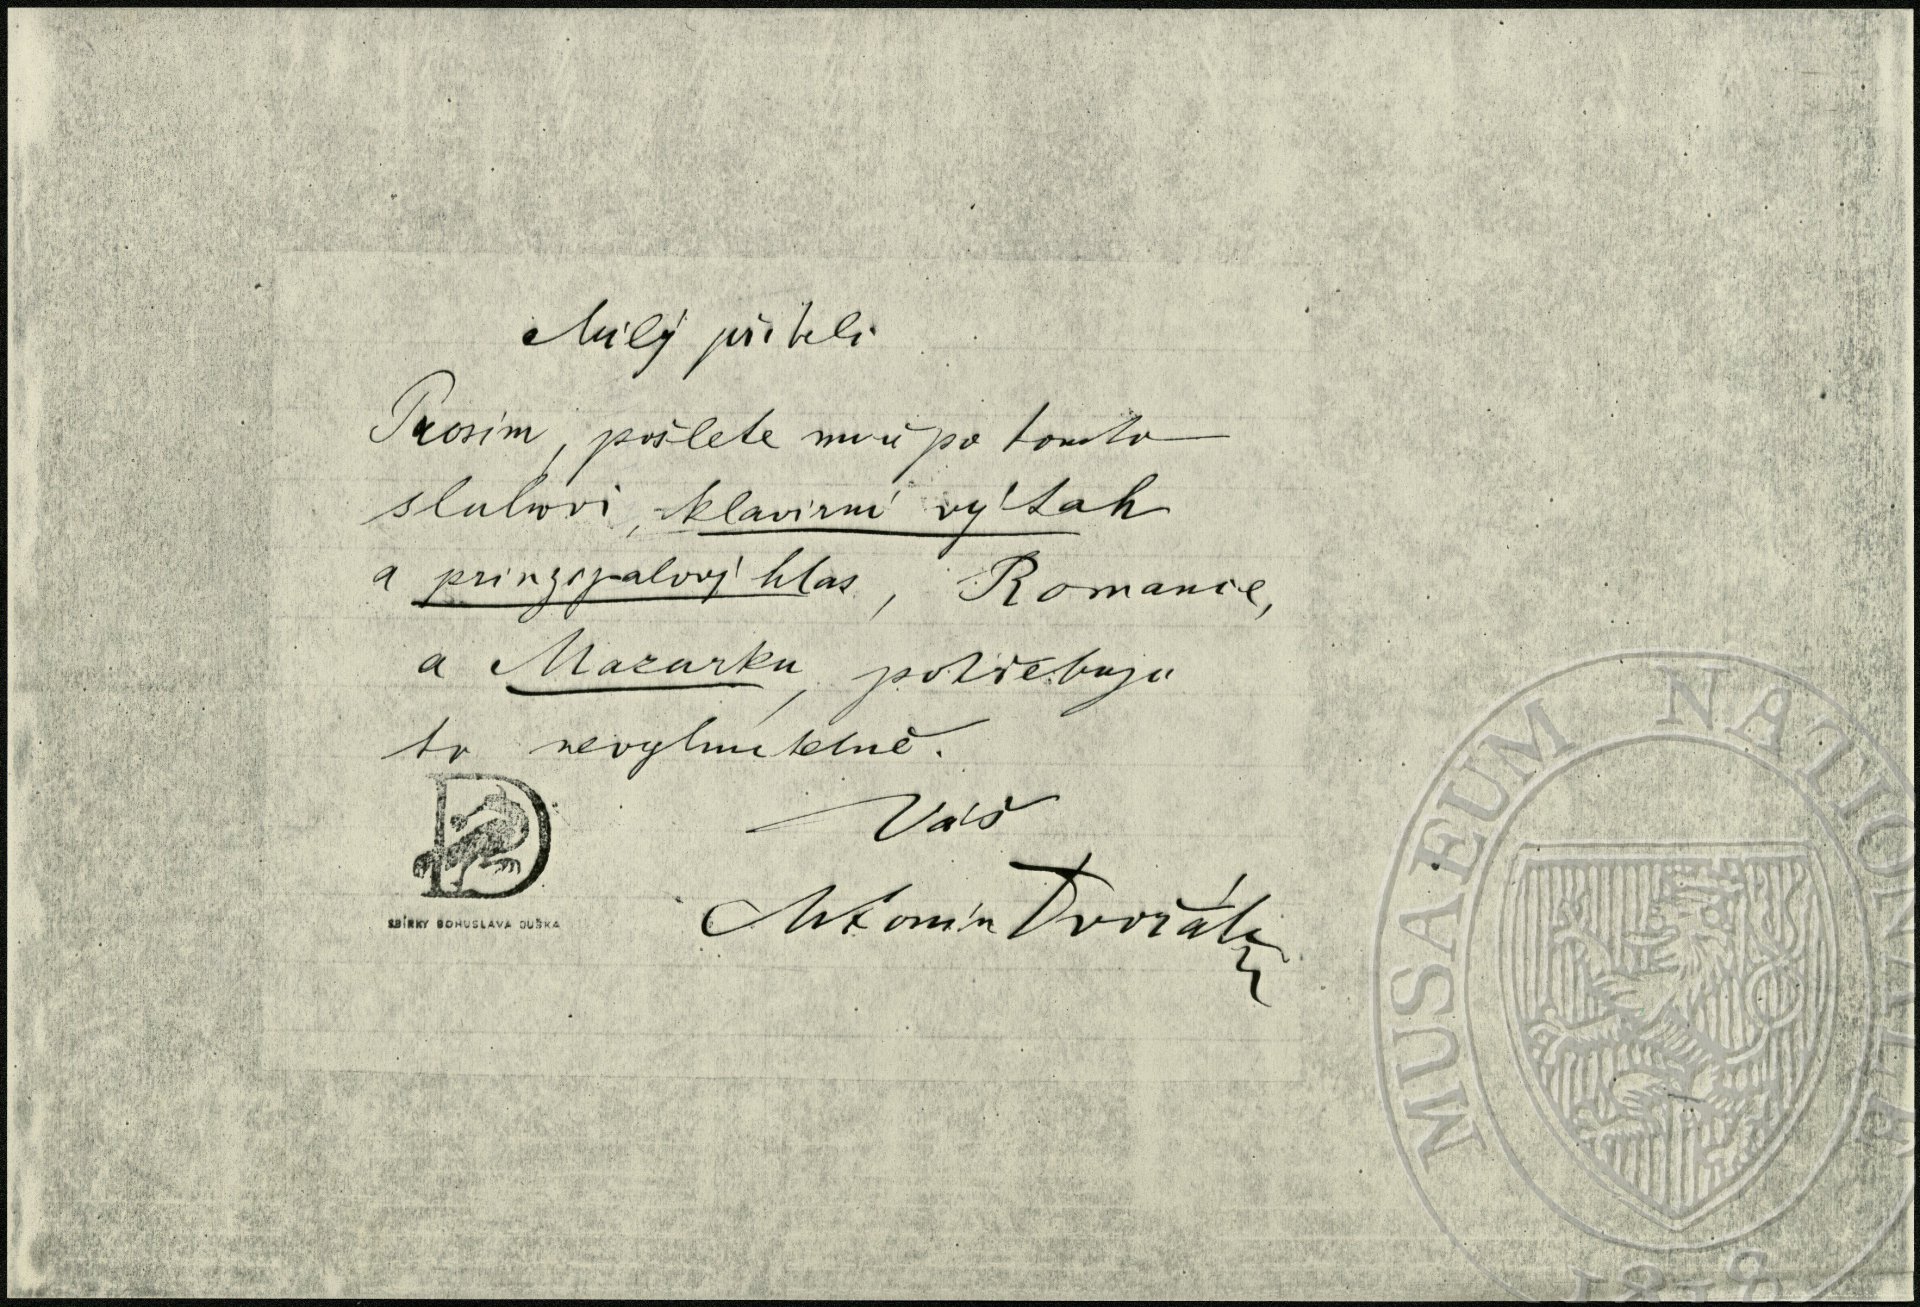 Milý příteli
Prosím, pošlete mně po tomto
sluhovi, klavirní výtah
a prinzipalový hlas, Romance,
a Mazurku, potřebuju
to nevyhnutelně.
Váš
Antonín Dvořák
SBÍRKY BOHUSLAVA DUŠKA
MUSAEUM NATIONALE
1818